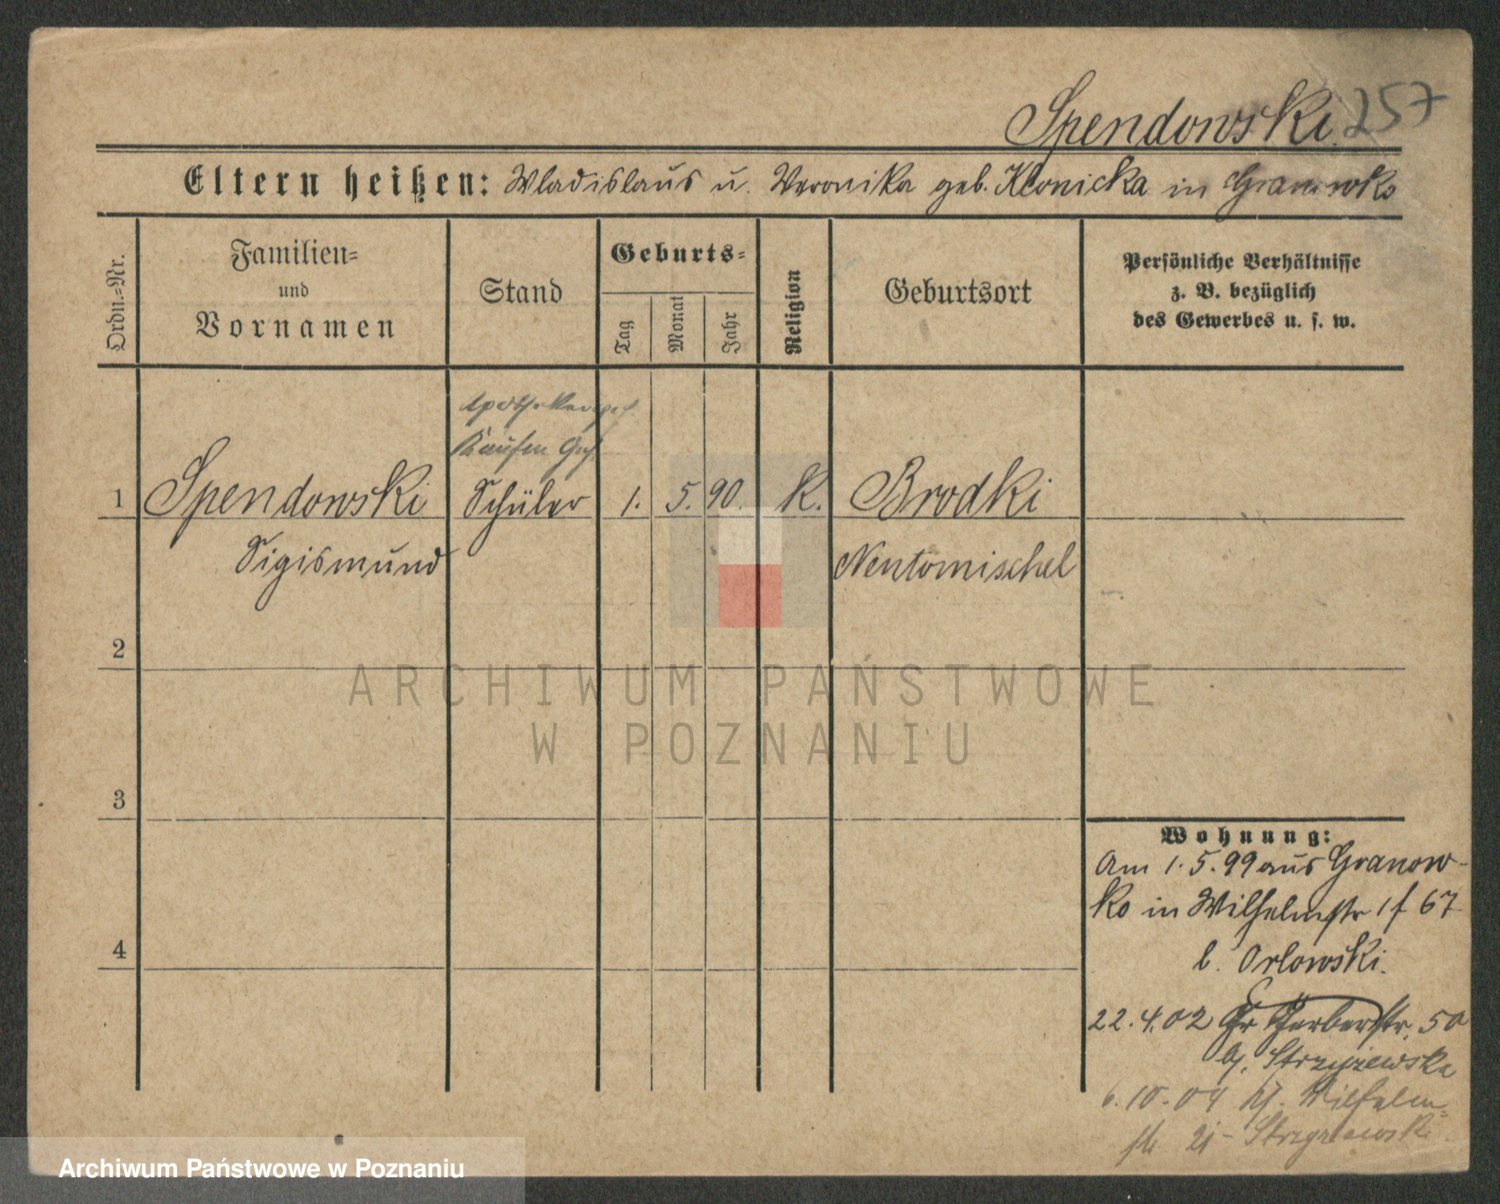 Spendowski. 257
Eltern heißen: Wladislaus u. Veronika geb. Klonicka in Granowko
Ordn.=Nr.
Familien=
und
Vornamen
Stand
Geburts=
Tag
Monat
Jahr
Religion
Geburtsort
Persönliche Verhältnisse
z. B. bezüglich
des Gewerbes u. s. w.
1 Spendowski Schüler 1. 5. 90. K. Brodki
Sigismund Neutomischel
2
3
4
ARCHIWUM PAŃSTWOWE
W POZNANIU
Wohnung:
Am 1.5.99 aus Granow-
ko in Wilhelmstr 67
b. Orlowski.
22.4.02 Gr Gerberstr. 50
bj. Strzyzewska
6.10.04 Wilhelm-
str
Archiwum Państwowe w Poznaniu